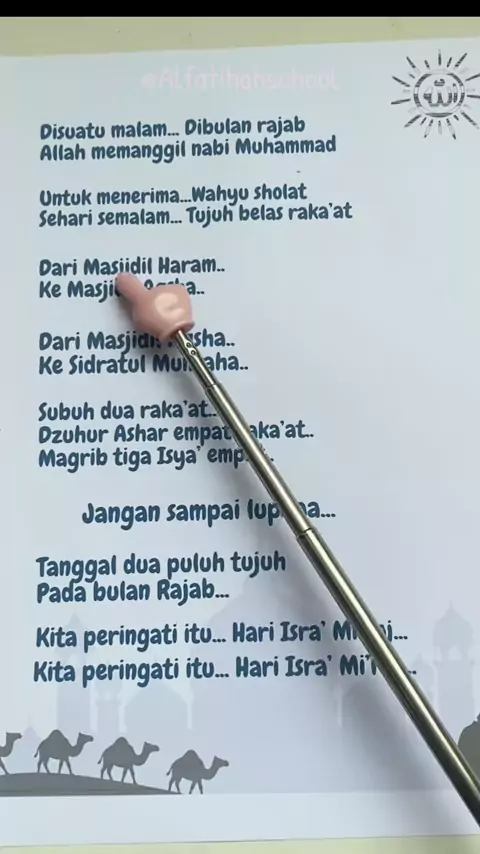 @Alfatihahschool
الله
Disuatu malam... Dibulan rajab
Allah memanggil nabi Muhammad
Untuk menerima...Wahyu sholat
Sehari semalam... Tujuh belas raka'at
Dari Masjidil Haram..
Ke
Dari
Ke Sidratul
Subuh dua raka'at..
Dzuhur Ashar empat
Magrib tiga Isya'
Jangan sampai
Tanggal dua puluh tujuh
Pada bulan Rajab...
Kita peringati itu... Hari Isra'
Kita peringati itu... Hari Isra'